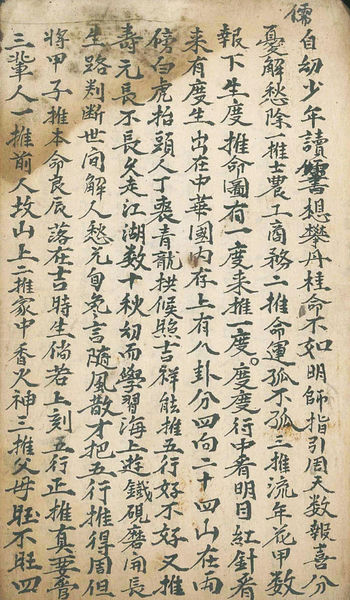 儒自幼少年讀儒書想攀丹桂命不如明師指引周天数報喜分
憂解愁除一推士農工商務二推命運孤不孤三推流年花甲数
報下生度推命圖有一度来推一度度度行中看明目紅針看
来有度生出在中華國内存上有八卦分四向二十四山在两
傍白虎抬頭人丁喪青龍拱候照吉祥能推五行好不好又推
壽元長不長久走江湖数十秋幼而學習海上遊鐵硯磨開長
生路判断世间解人愁元旬冬言随風散才把五行推得周但
將甲子推本命良辰落在吉時生倘若上刻五行正推真要言
三輩人一推前人故山上二推家中香火神三推父母旺不旺四